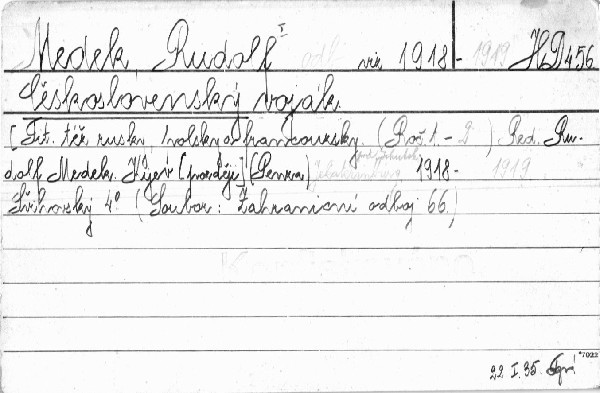 Medek, Rudolf I viz 1918- 1919 HD456
Československý voják.
[Tit. též rusky, a francouzsky. (Roč. 1 - 2). Red. Ru-
dolf Medek. Kyjev [později] (Penza) 1918- 1919
4° (Soubor: Zahraniční odboj 66.)
22 I.35.
*7022